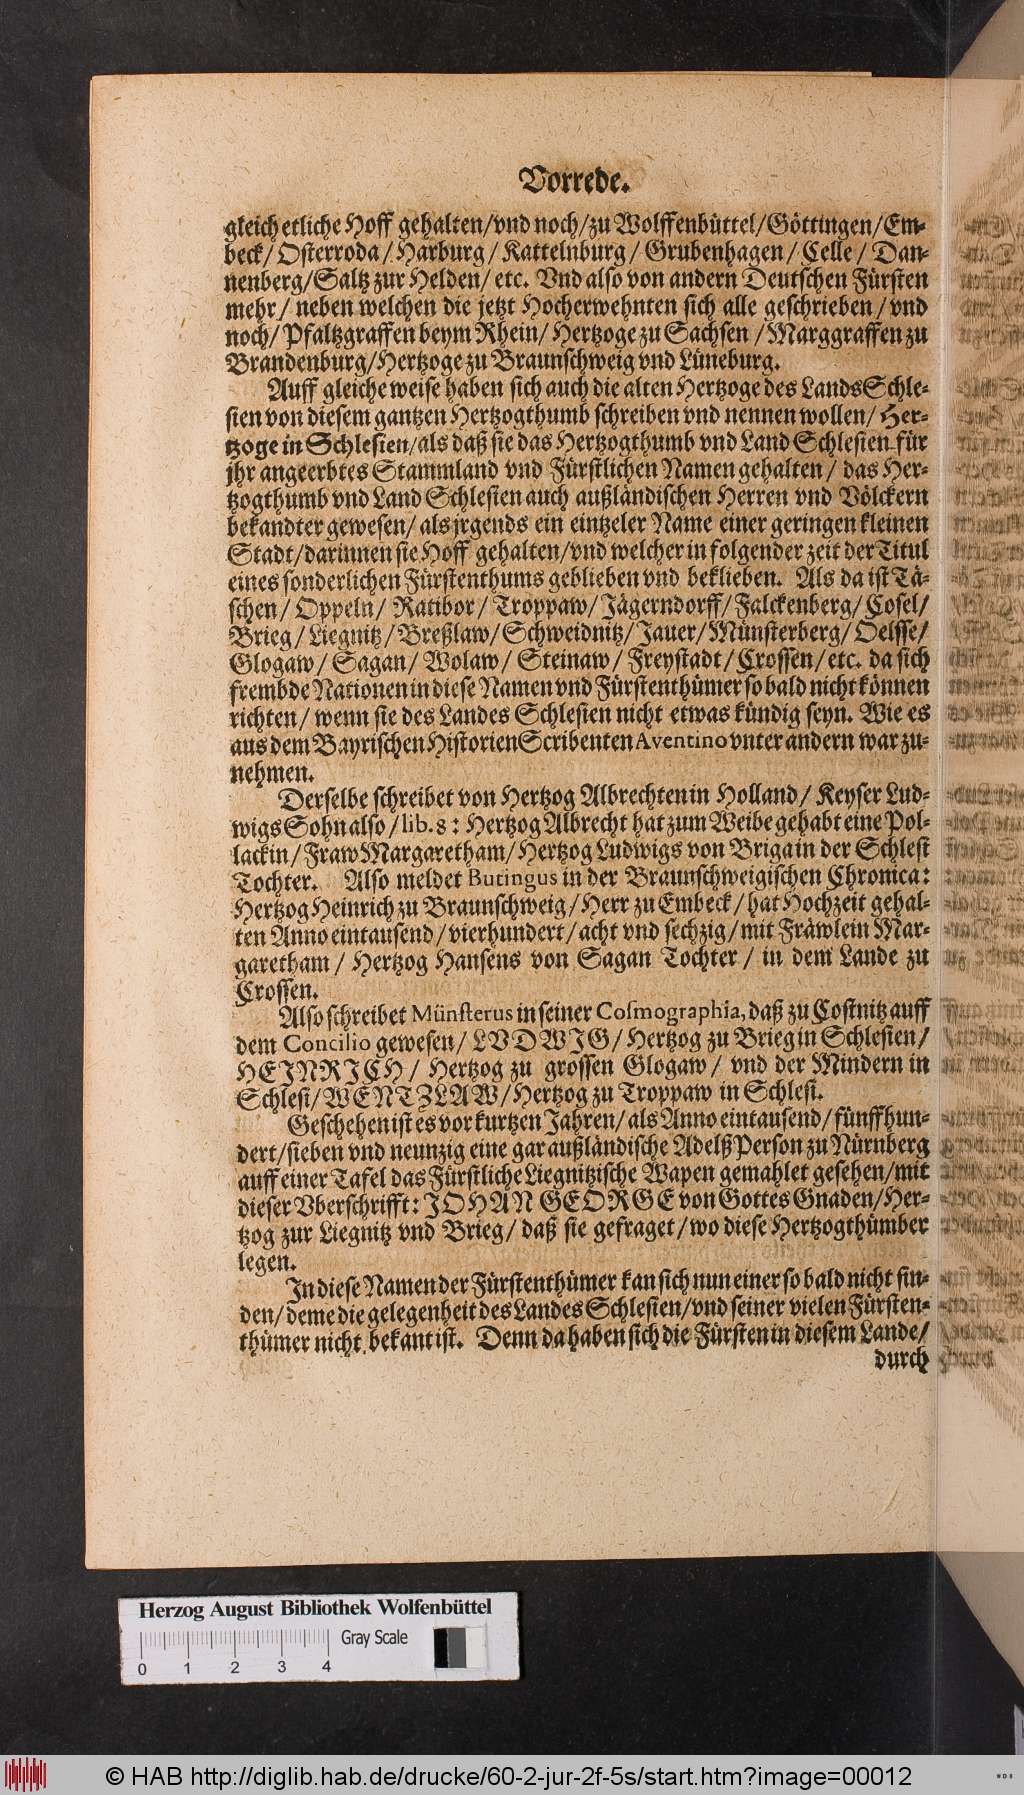 Vorrede.
gleich etliche Hoff gehalten/vnd noch/zu Wolffenbüttel/Göttingen/Em-
beck/ Osterroda/ Harburg/ Kattelnburg/ Grubenhagen/ Celle/ Dan-
nenberg/Saltz zur Helden/ etc. Vnd also von andern Deutschen Fürsten
mehr/ neben welchen die jetzt Hocherwehnten sich alle geschrieben/ vnd
noch/ Pfaltzgraffen beym Rhein/ Hertzoge zu Sachsen/ Marggraffen zu
Brandenburg/Hertzoge zu Braunschweig vnd Lüneburg.
Auff gleiche weise haben sich auch die alten Hertzoge des Lands Schle-
sien von diesem gantzen Hertzogthumb schreiben vnd nennen wollen/ Her-
tzoge in Schlesien/als daß sie das Hertzogthumb vnd Land Schlesien für
jhr angeerbtes Stammland vnd Fürstlichen Namen gehalten/ das Her-
tzogthumb vnd Land Schlesien auch außländischen Herren vnd Völckern
bekandter gewesen/ als jrgends ein eintzeler Name einer geringen kleinen
Stadt/darinnen sie Hoff gehalten/vnd welcher in folgender zeit der Titul
eines sonderlichen Fürstenthums geblieben vnd beklieben. Als da ist Tä-
schen/ Oppeln/ Ratibor/ Troppaw/ Jägerndorff/ Falckenberg/ Cosel/
Brieg/ Liegnitz/ Breßlaw/ Schweidnitz/ Jauer/ Münsterberg/ Oelsse/
Glogaw/ Sagan/ Wolaw/ Steinaw/ Freystadt/ Crossen/ etc. da sich
frembde Nationen in diese Namen vnd Fürstenthümer so bald nicht können
richten/ wenn sie des Landes Schlesien nicht etwas kündig seyn. Wie es
aus dem Bayrischen Historien Scribenten Aventino vnter andern war zu-
nehmen.
Derselbe schreibet von Hertzog Albrechten in Holland/ Keyser Lud-
wigs Sohn also/ lib. 8: Hertzog Albrecht hat zum Weibe gehabt eine Pol-
lackin/ Fraw Margaretham/ Hertzog Ludwigs von Briga in der Schlesi
Tochter. Also meldet Butingus in der Braunschweigischen Chronica:
Hertzog Heinrich zu Braunschweig/ Herr zu Embeck/ hat Hochzeit gehal-
ten Anno eintausend/ vierhundert/ acht vnd sechzig/ mit Fräwlein Mar-
garetham/ Hertzog Hansens von Sagan Tochter/ in dem Lande zu
Crossen.
Also schreibet Münsterus in seiner Cosmographia, daß zu Costnitz auff
dem Concilio gewesen/ LVDWIG/ Hertzog zu Brieg in Schlesien/
HEINRICH/ Hertzog zu grossen Glogaw/ vnd der Mindern in
Schlesi/ WENTZLAW/ Hertzog zu Troppaw in Schlesi.
Geschehen ist es vor kurtzen Jahren/ als Anno eintausend/ fünffhun-
dert/sieben vnd neunzig eine gar außländische Adelß Person zu Nürnberg
auff einer Tafel das Fürstliche Liegnitzische Wapen gemahlet gesehen/mit
dieser Vberschrifft: JOHAN GEORGE von Gottes Gnaden/Her-
tzog zur Liegnitz vnd Brieg/ daß sie gefraget/ wo diese Hertzogthümber
legen.
In diese Namen der Fürstenthümer kan sich nun einer so bald nicht fin-
den/ deme die gelegenheit des Landes Schlesien/vnd seiner vielen Fürsten-
thümer nicht bekant ist. Denn da haben sich die Fürsten in diesem Lande/
durch
Herzog August Bibliothek Wolfenbüttel
Gray Scale
0 1 2 3 4
© HAB http://diglib.hab.de/drucke/60-2-jur-2f-5s/start.htm?image=00012